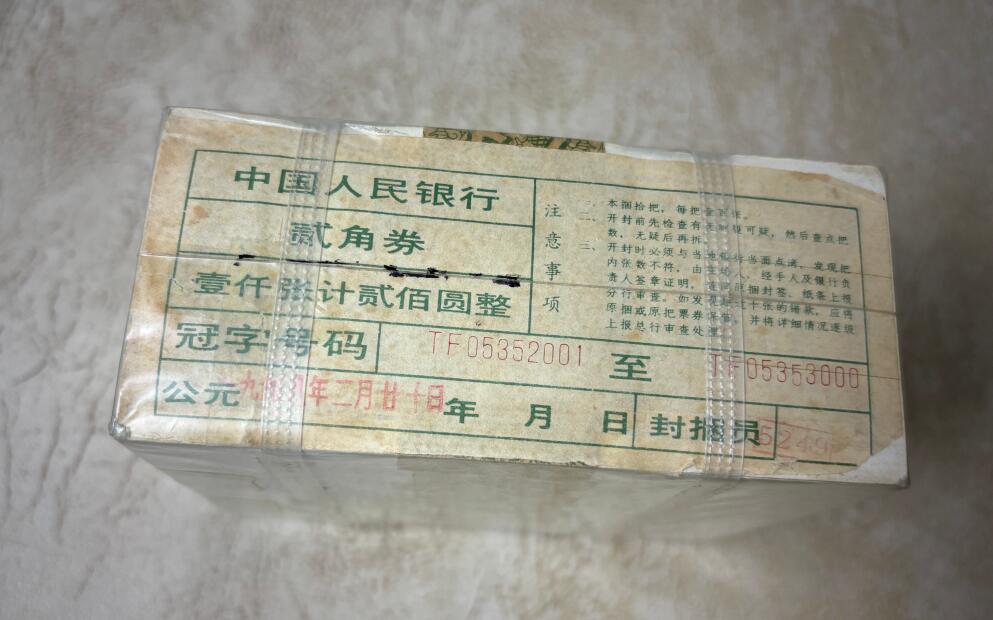 中国人民银行
贰角券
壹仟张计贰佰圆整
冠字号码
TF05352001 至 TF05353000
公元
年二月廿十日
年 月 日
封捆员
5249
注意事项
一、本捆拾把，每把壹百张。
二、开封前先检查有无破损可疑，然后查点把
数，无疑后再拆。
三、开封时必须与当地银行当面点清，发现把
内张数不符，由 经手人及银行负
责人签章证明，连同原捆封签、纸条上报
分行审查。如发现 十张的错款，应将
原捆或原把票券保留，并将详细情况逐级
上报总行审查处理。